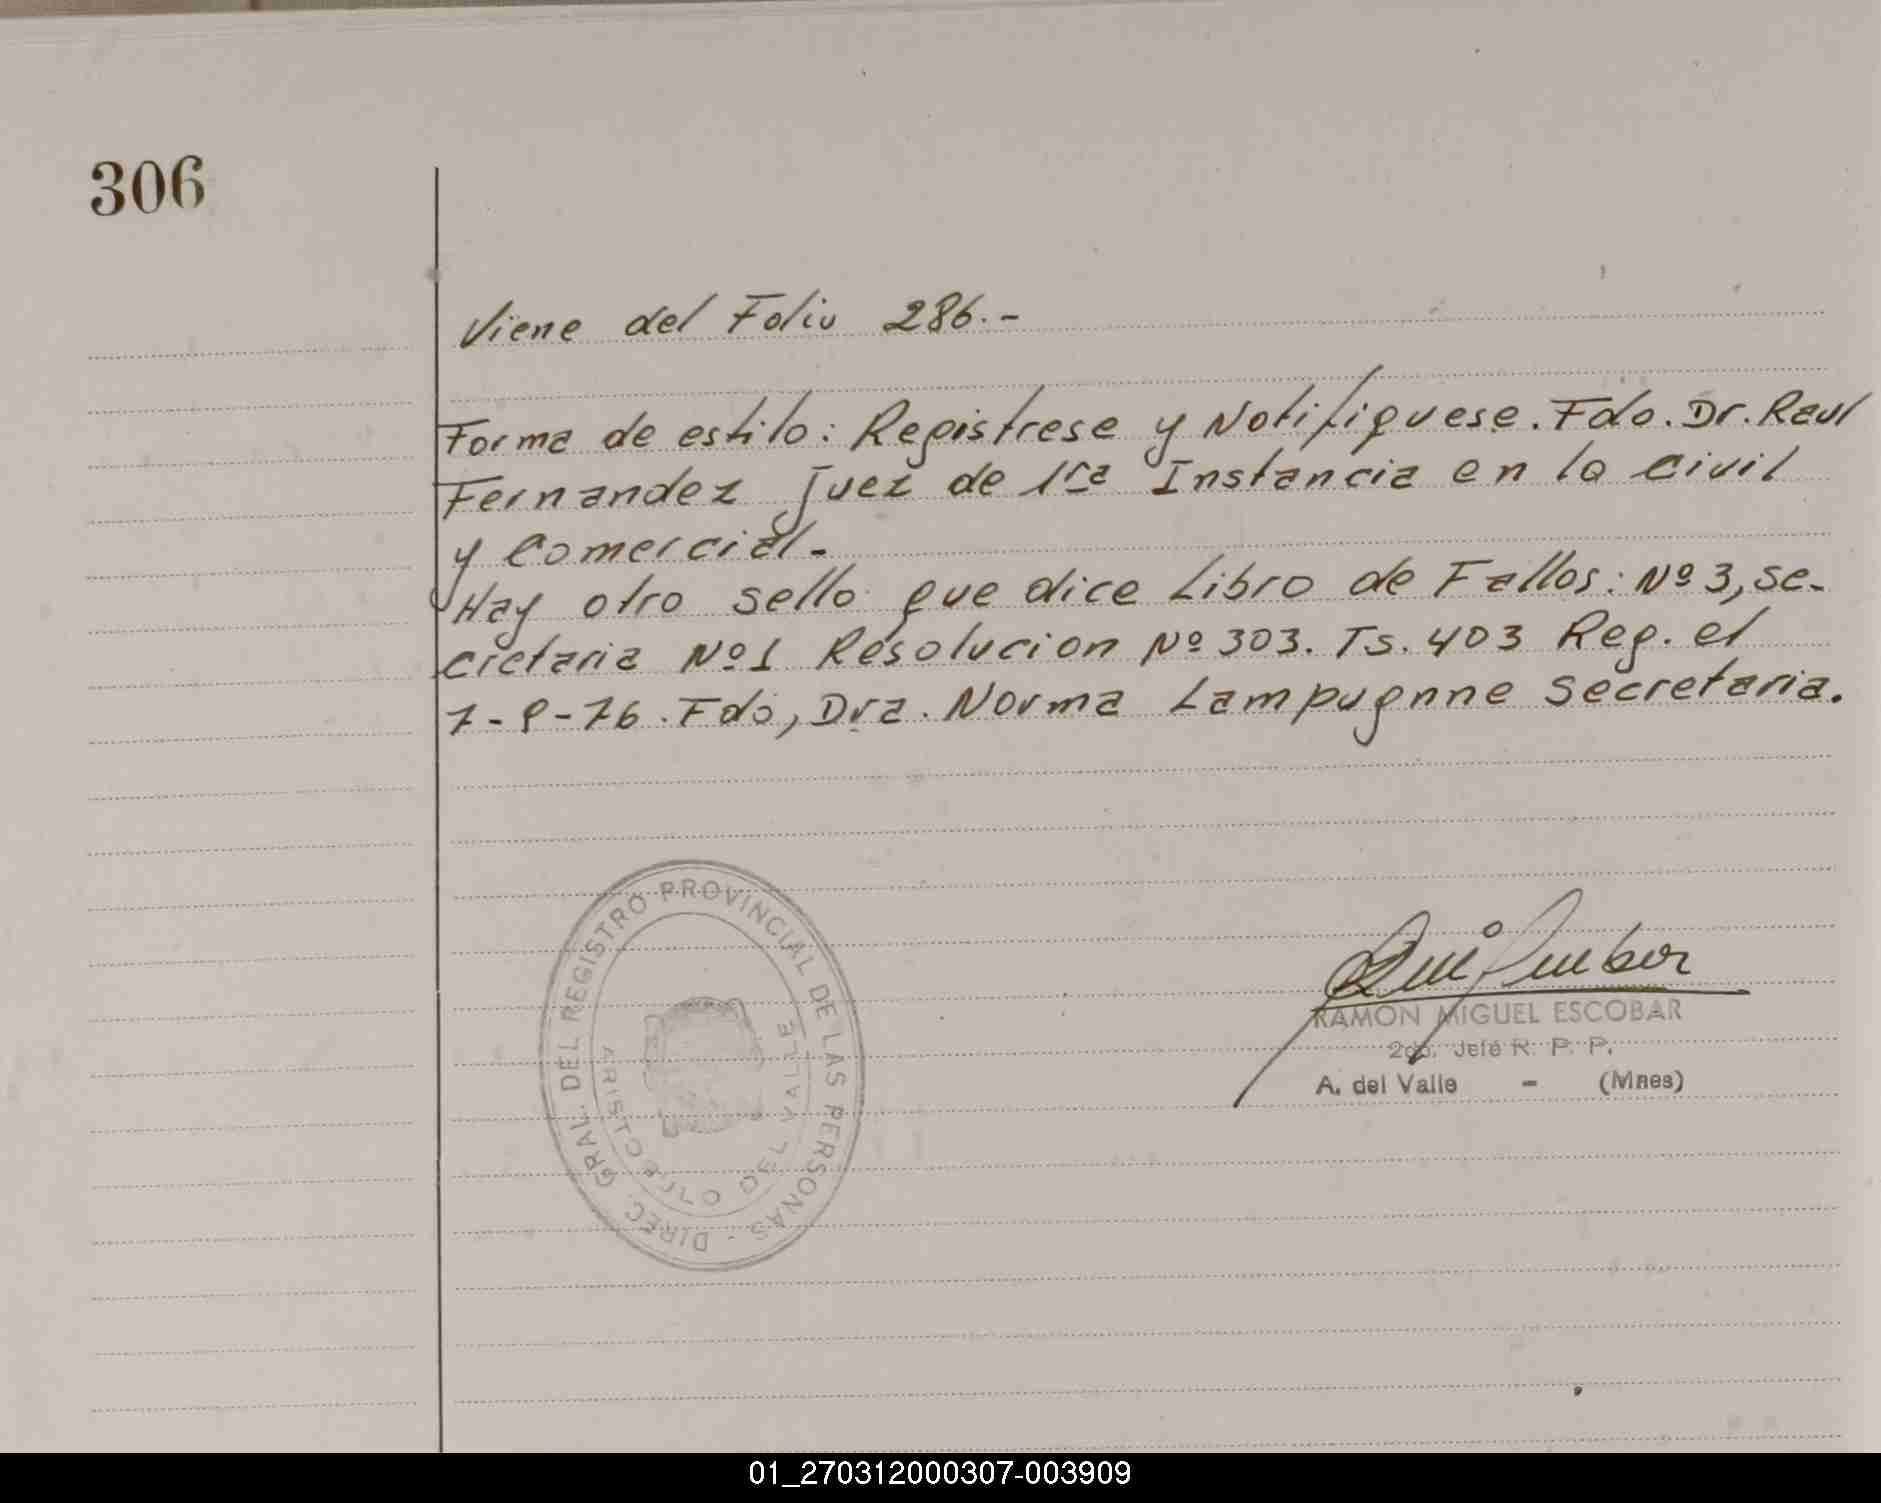 306
Viene del Folio 286.-
Forma de estilo: Registrese y Notifiquese. Fdo. Dr. Raul
Fernandez Juez de 1ra Instancia en lo Civil
y Comercial.-
Hay otro sello que dice Libro de Fallos: Nº 3, se-
cretaria Nº 1 Resolucion Nº 303. Ts. 403 Reg. el
7-9-76. Fdo, Dra. Norma Lampugnne secretaria.
DIREC. GRAL. DEL REGISTRO PROVINCIAL DE LAS PERSONAS -
ARISTOBULO DEL VALLE
RAMON MIGUEL ESCOBAR
2do. Jefe R. P. P.
A. del Valle - (Mnes)
01_270312000307-003909